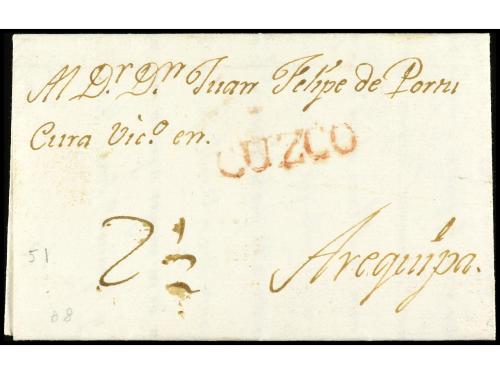 Al D.r D.n Juan Felipe de Portu
Cura Vic.o en.
CUZCO
2½
Arequipa.
51
08